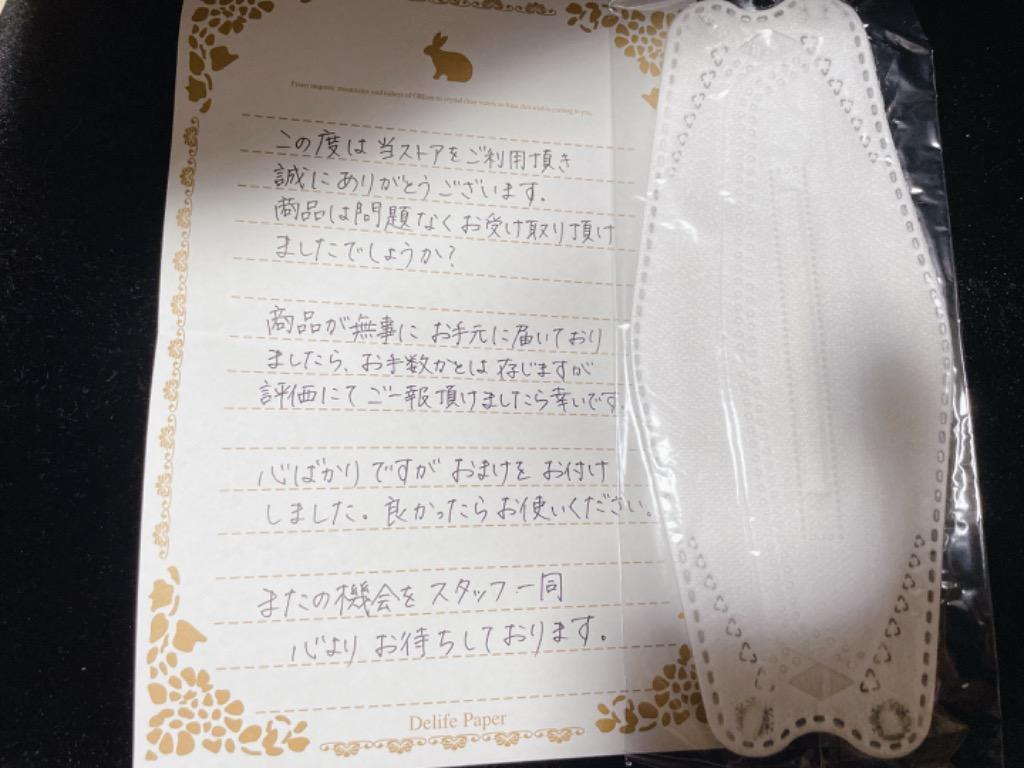 この度は当ストアをご利用頂き
誠にありがとうございます.
商品は問題なくお受け取り頂け
ましたでしょうか?
商品が無事にお手元に届いており
ましたら、お手数かとは存じますが
評価にてご一報頂けましたら幸いです.
心ばかりですがおまけをお付け
しました。良かったらお使いください。
またの機会をスタッフ一同
心よりお待ちしております。
Delife Paper